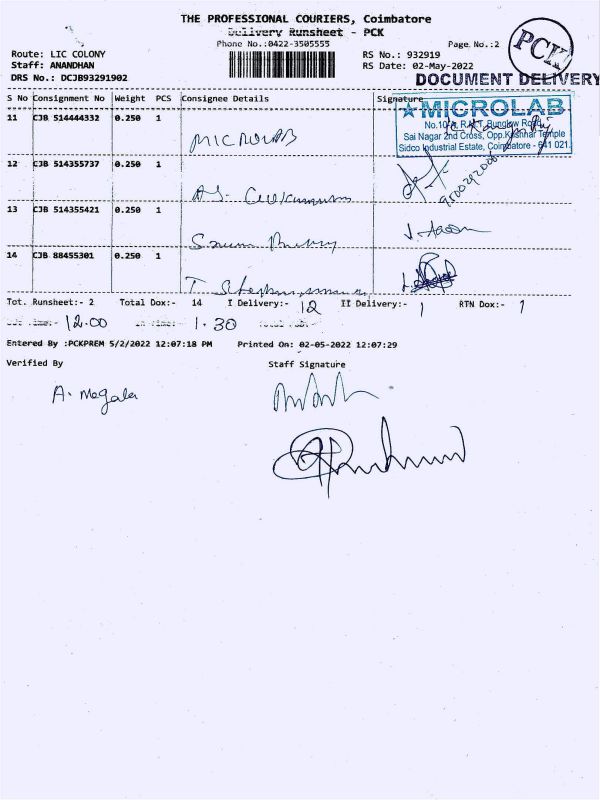 THE PROFESSIONAL COURIERS, Coimbatore
Delivery Runsheet - PCK
Phone No.:0422-3505555
Page No.:2
PCK
Route: LIC COLONY
RS No.: 932919
Staff: ANANDHAN
RS Date: 02-May-2022
DRS No.: DCJB93291902
DOCUMENT DELIVERY
S No Consignment No Weight PCS Consignee Details Signature
★ MICROLAB
11 CJB 514444332 0.250 1
MICROLAB
Sai Nagar 2nd Cross, Opp. Krishnar Temple
Sidco Industrial Estate, Coimbatore - 641 021.
12 CJB 514355737 0.250 1
13 CJB 514355421 0.250 1
14 CJB 88455301 0.250 1
Tot. Runsheet:- 2 Total Dox:- 14 I Delivery:- 12 II Delivery:- 1 RTN Dox:- 1
12.00 1.30
Entered By :PCKPREM 5/2/2022 12:07:18 PM Printed On: 02-05-2022 12:07:29
Verified By Staff Signature
A. Megala